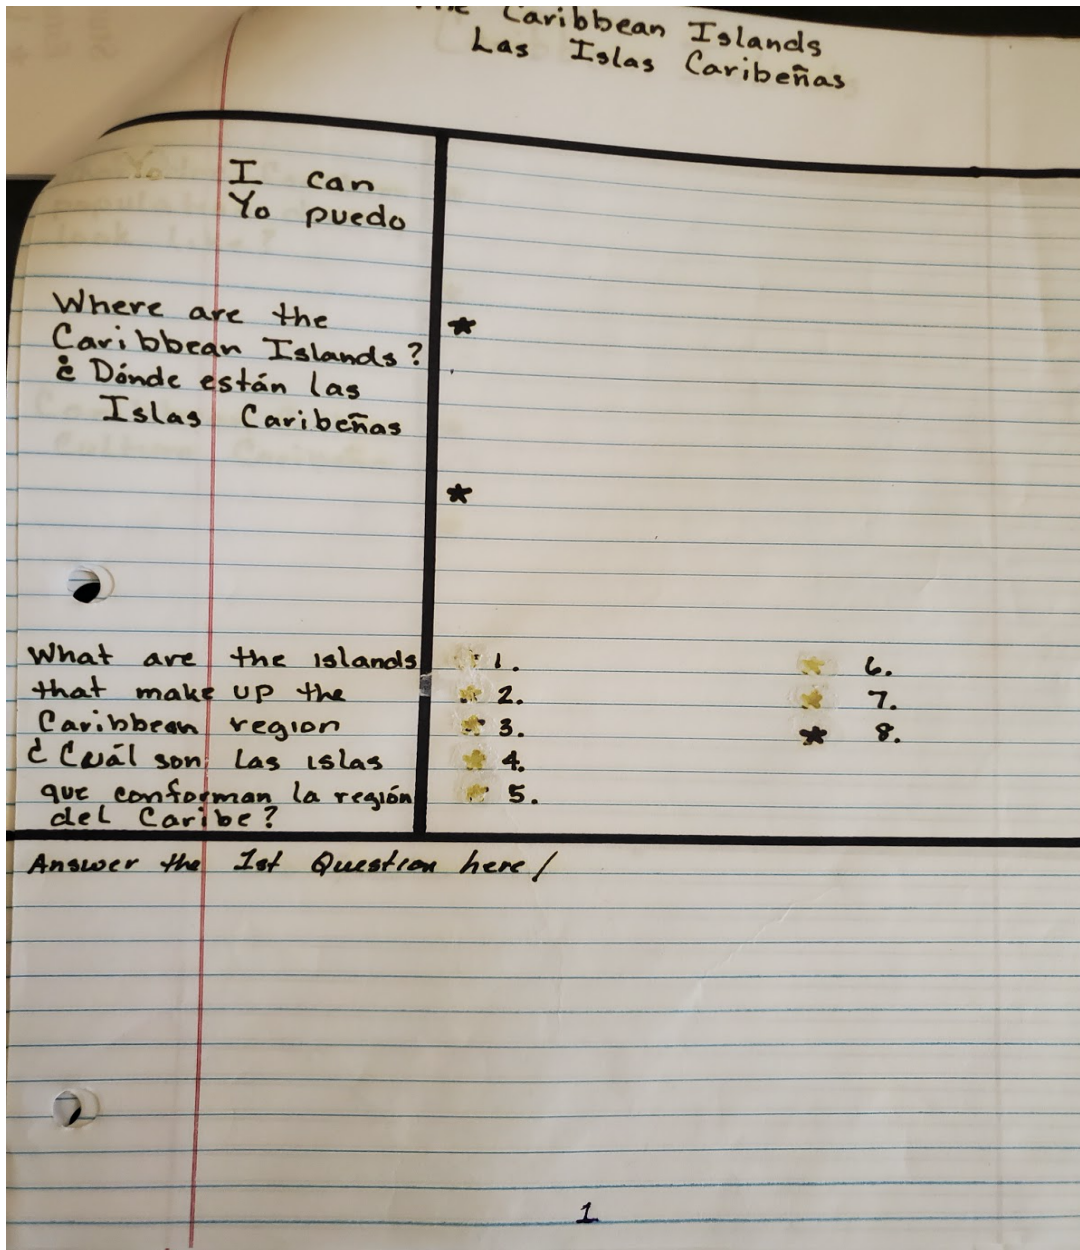 The Caribbean Islands
Las Islas Caribeñas
I can
Yo puedo
Where are the
Caribbean Islands?
¿ Dónde están las
Islas Caribeñas
*
*
What are the islands
that make up the
Caribbean region
¿ Cuál son las islas
que conforman la región
del Caribe?
* 1.
* 2.
* 3.
* 4.
* 5.
* 6.
* 7.
* 8.
Answer the 1st Question here!
1